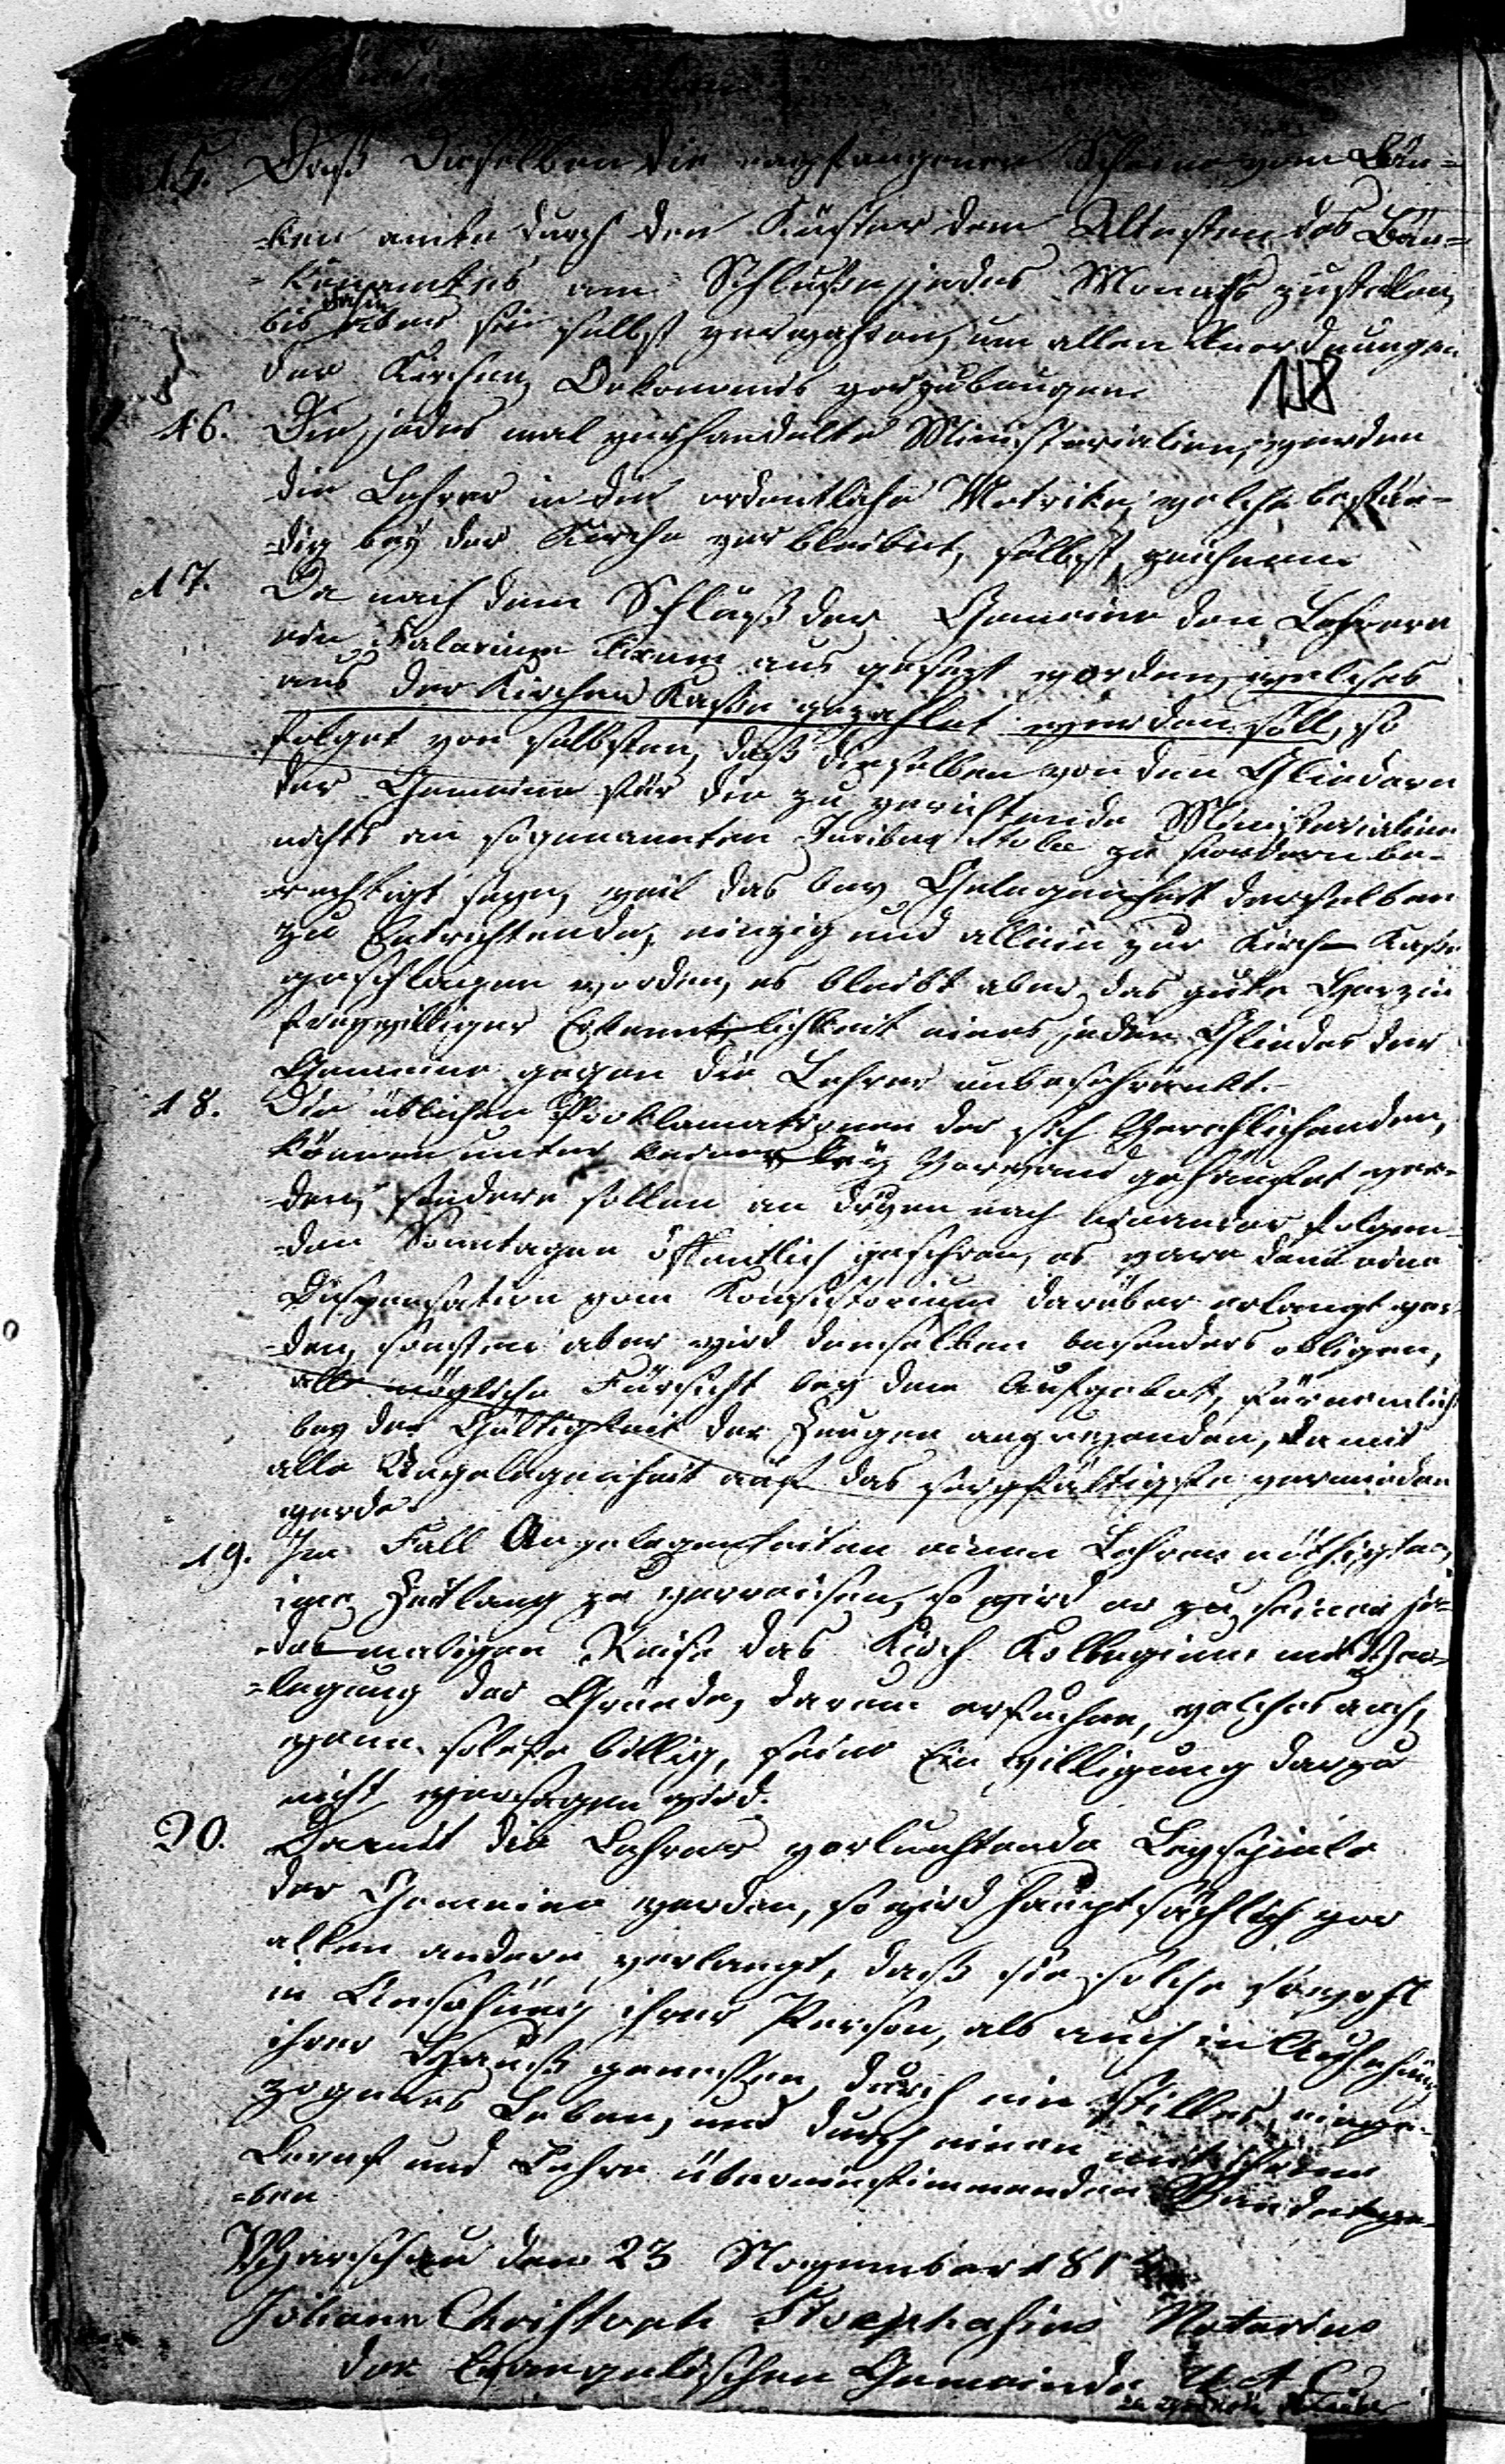 15. Daß dieselben die empfangenen Scheine vom Bän=
=ken amte durch den Küster dem Altesten des Bän=
=kenamtes am Schluße jedes Monaths zustellen,
bis dahin aber sie selbst verwahren, um allen Unordnungen
der Kirchen Oekonomie vorzubeugen.
118
16. Die jedes mal verhandelte Ministerialien, werden
die Lehrer in die ordentliche Matrike, welche bestän=
=dig bey der Kirche verbleibet, selbst zeichnen.
17. Da nach dem Schluß der Gemeine den Lehrern
ein Salarium fixum aus gesezt worden, welches
aus der Kirchen Kasse gezahlet werden soll, so
folget von selbsten, daß dieselben von den Gliedern
der Gemeine für die zu verrichtende Ministerialien
nichts an sogenannten Juribus Stolae zu fordern be=
=rechtigt seyn, weil das bey Gelegenheit derselben
zu Entrichtende, einzig und allein zur Kirchen Kasse
geschlagen worden, es bleibt aber das gute Herz in
freywilliger Erkenntlichkeit eines jeden Gliedes der
Gemeine gegen die Lehrer unbeschränkt.
18. Die üblichen Proklamationen der sich Verehlichenden,
können unter keinerley Vorwand gehäufet wer=
den, sondern sollen an dreyen nach einander folgen=
=den Sonntagen öffentlich geschehen, es wäre denn eine
Dispensation vom Konsistorium darüber erlangt wor=
=den, sonsten aber wird denselben besonders obligen,
alle mögliche Fürsicht bey dem Aufgebot, fürnemlich
bey der Gültigkeit der Zeugen anzuwenden, damit
alle Ungelegenheit auf das sorgfältigste vermieden
werde.
19. Im Fall Angelegenheiten einen Lehrer nöthigten,
eine Zeitlang zu verreisen, so wird er zu seiner je=
=desmaligen Reise das Kirch Kollegium mit Vor=
=legung der Gründe, darum ersuchen, welches auch,
wenn solche billig, seine Einwilligung darzu
nicht versagen wird.
20. Damit die Lehrer vorleuchtende Beyspiele
der Gemeine werden, so wird hauptsächlich vor
allen andern verlangt, daß sie solche sowohl
in Ansehung ihrer Person, als auch in Ansehung
ihrer Hausgenossen, durch ein stilles, einge=
zogenes Leben, und durch einen mit ihrem
Beruf und Lehre übereinstimmenden Wandel ge=
=ben
Warschau den 23 November 181
Johann Christoph Notarius
der Evangelischen Gemeinde U. A. C.